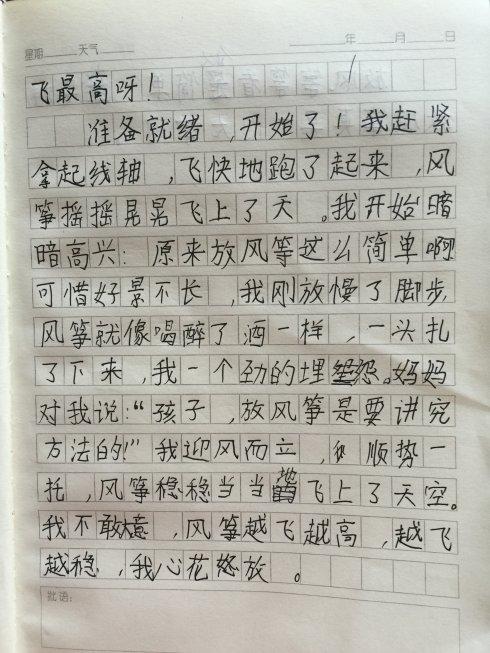 星期 天气 年 月 日
飞最高呀！
准备就绪，开始了！我赶紧
拿起线轴，飞快地跑了起来，风
筝摇摇晃晃飞上了天。我开始暗
暗高兴：原来放风筝这么简单啊
可惜好景不长，我刚放慢了脚步，
风筝就像喝醉了酒一样，一头扎
了下来，我一个劲的埋怨。妈妈
对我说：“孩子，放风筝是要讲究
方法的！”我迎风而立，顺势一
托，风筝稳稳当当地飞上了天空。
我不敢大意，风筝越飞越高，越飞
越稳，我心花怒放。
批语：